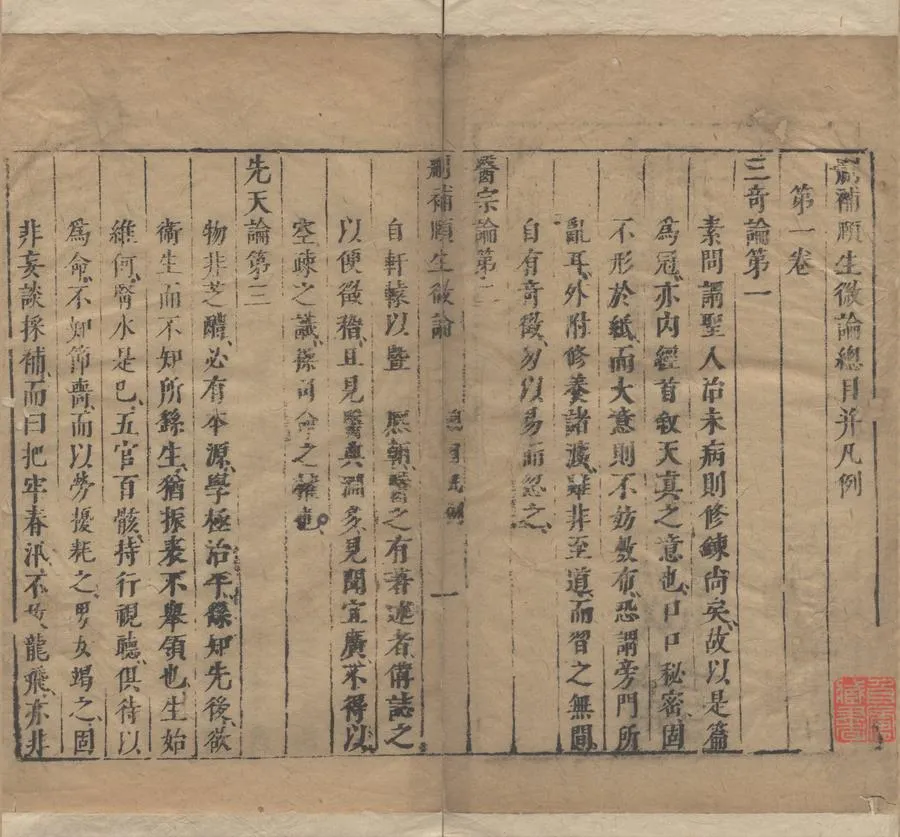 刪補頤生微論總目并凡例
第一卷
三奇論第一
素問謂聖人治未病則修鍊尚矣故以是篇
為冠亦内經首敘天真之意也口口秘密固
不形於紙而大意則不妨敷布恐謂旁門所
亂耳外附修養諸渡雖非至道而習之無間
自有奇徵勿以易而忽之
醫宗論第二
刪補頤生微論
總目凡例
一
自軒轅以暨 熙朝醫之有著述者備誌之
以便徵稽且見醫典淵多見聞宜廣不得以
空疎之識操司命之權也
先天論第三
物非芝醴必有本源學極治平繇知先後欲
衛生而不知所繇生猶振裘不舉領也生始
維何腎水是巳五官百骸持行視聽俱待以
為命不知節嗇而以勞擾耗之男女竭之固
非妄談採補而曰把牢春汛不放龍飛亦非